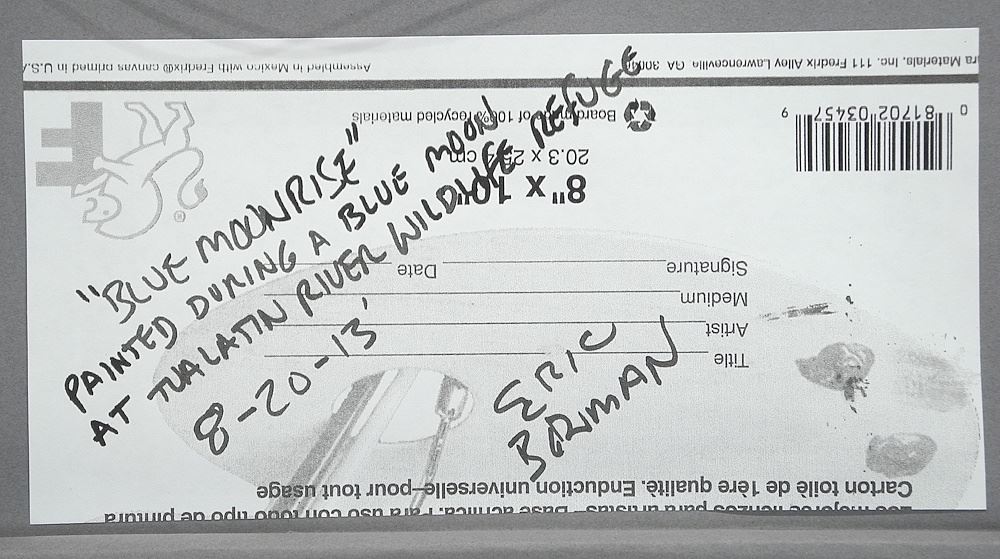 "BLUE MOONRISE"
PAINTED DURING A BLUE MOON
AT TUALATIN RIVER WILDLIFE REFUGE
8-20-13'
ERIC
BOWMAN
Los mejores lienzos para artistas - Base acrílica. Para uso con todo tipo de pintura
Carton toilé de 1ère qualité. Enduction universelle–pour tout usage
Title
Artist
Medium
Signature
Date
8" x 10"
20.3 x 25.4 cm
Board made of 100% recycled materials
0 81702 03457 9
ra Materials, Inc. 111 Fredrix Alley Lawrenceville GA 30046
Assembled in Mexico with Fredrix® canvas primed in U.S.A